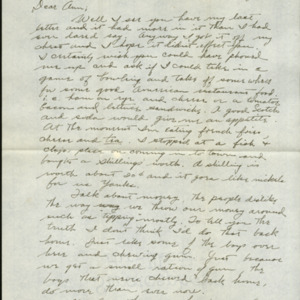 Dear Ann,
Well I see you have my last
letter and it had more in it than I had
ever dared say. Anyway I got it off my
chest and I hope it didn't affect you.
I certainly wish you could have phoned
me and ask if I could take in a
game of bowling and take off somewhere
for some good American restaurant food,
i.e. ham on rye and cheese or a tomato
bacon and lettuce sandwich. A good Scotch
and soda would give me an appetite.
At the moment I'm eating french fries
cheese and tea. I stopped at a fish &
chips store coming in to town and
bought a shillings worth. A shilling is
worth about 20¢ and it goes like nickels
for us Yanks.
Talk about money, the people dislike
the way we throw our money around
such as tipping mostly. To tell you the
truth I don't think I'd do that back
home. Just take some of the boys over
here and chewing gum. Just because
we get a small ration of gum the
boys that never chewed back home,
do more than ever now.